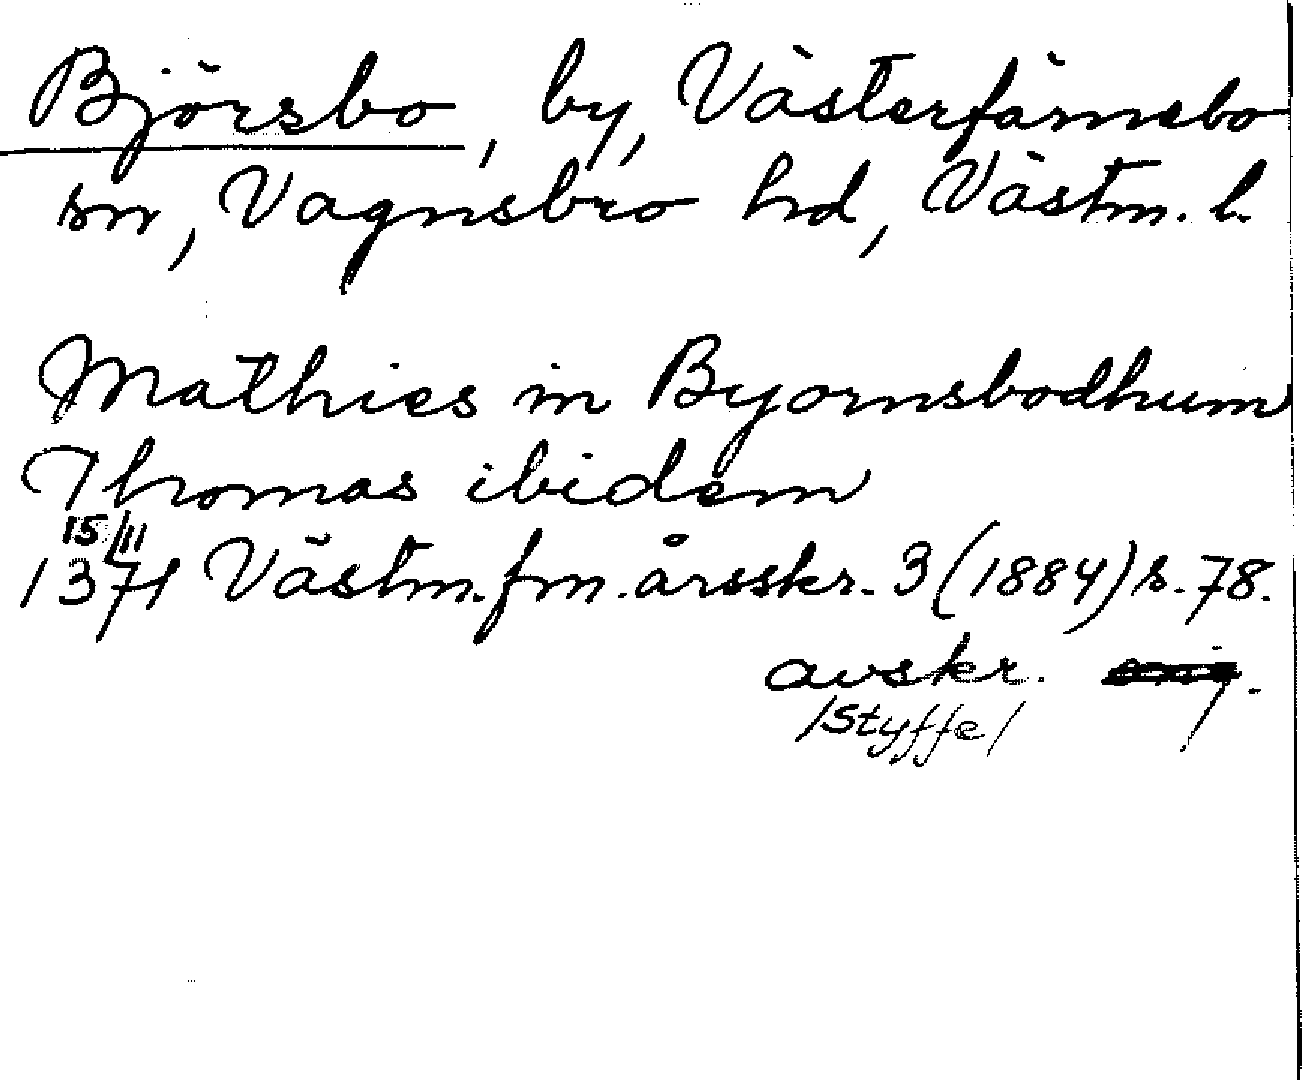 Björsbo, by, Västerfärnebo
sn, Vagnsbro hd, Västm. l.
Mathies in Byornsbodhum
Thomas ibidem
15/11
1371 Västm.fm.årsskr. 3 (1884) s. 78.
avskr.
/Styffe/